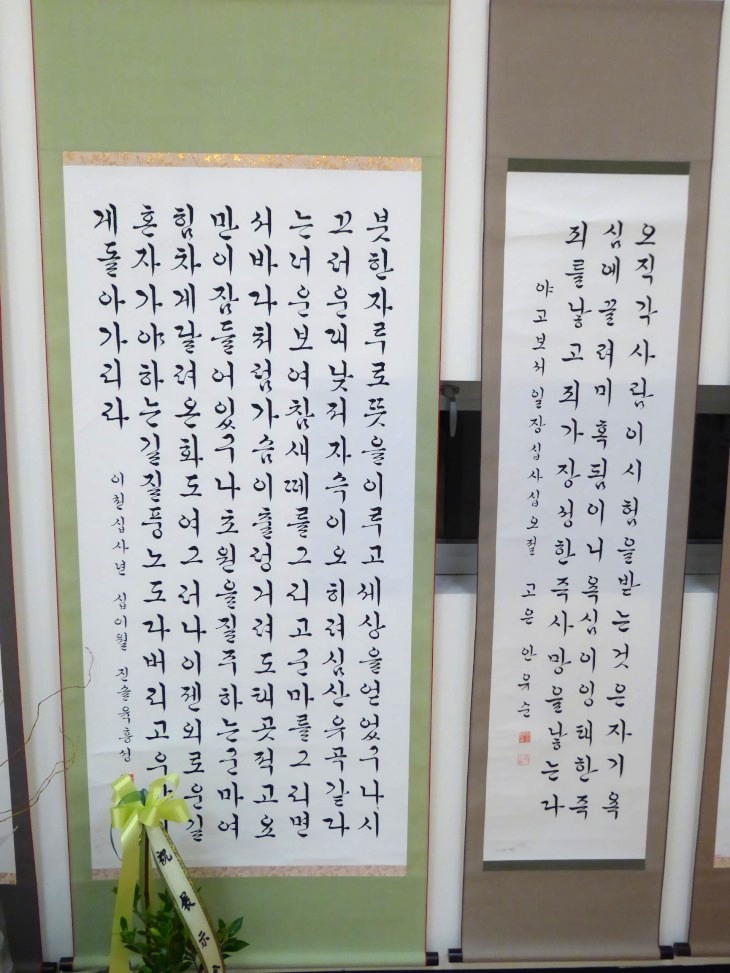 오직각사람이시험을받는것은자기욕
심에끌려미혹됨이니욕심이잉태한즉
죄를낳고죄가장성한즉사망을낳는다
야고보서일장십사십오절 고은 안유순
붓한자루로뜻을이루고세상을얻었구나시
끄러운대낮저자속이오히려심산유곡같다
는러운보여참새떼를그리고군마를그리면
서바다처럼가슴이출렁거려도태곳적고요
만이잠들어있구나초원을질주하는군마여
힘차게달려온화도여그러나이젠외로운길
혼자가야하는길질풍노도라버리고우
게돌아가리라
이천십사년 십이월 진솔
祝 展示